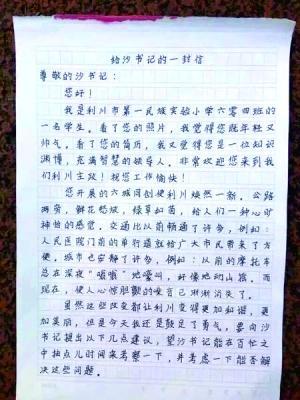 给沙书记的一封信
尊敬的沙书记：
您好！
我是利川市第一民族实验小学六零四班的
一名学生。看了您的照片，我觉得您既年轻又
帅气。看了您的简历，我又觉得您是一位知识
渊博，充满智慧的领导人。非常欢迎您来到我
们利川主政！祝您工作愉快！
您开展的六城同创使利川焕然一新。公路
两旁，鲜花怒放，绿草如茵，给人们一种心旷
神怡的感觉。交通比以前畅通了许多，例如：
人民医院门前的单行道就给广大市民带来了方
便。城市也安静了许多，例如：以前的摩托车
总在深夜“嗷嗷”地嚎叫，好像地动山摇。而
现在，使人心惊胆颤的噪音已渐渐消失了。
虽然这些改变都让利川变得更加和谐，更
加美丽，但是今天我还是鼓足了勇气，要向沙
书记提出以下几点建议，望沙书记能在百忙之
中抽点儿时间来看察一下，并考虑一下能否解
决这些问题。